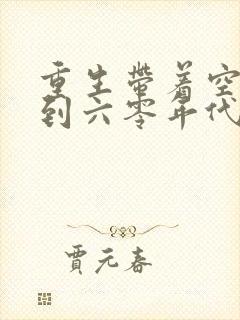 重生带着空
到六零年代
贾元春